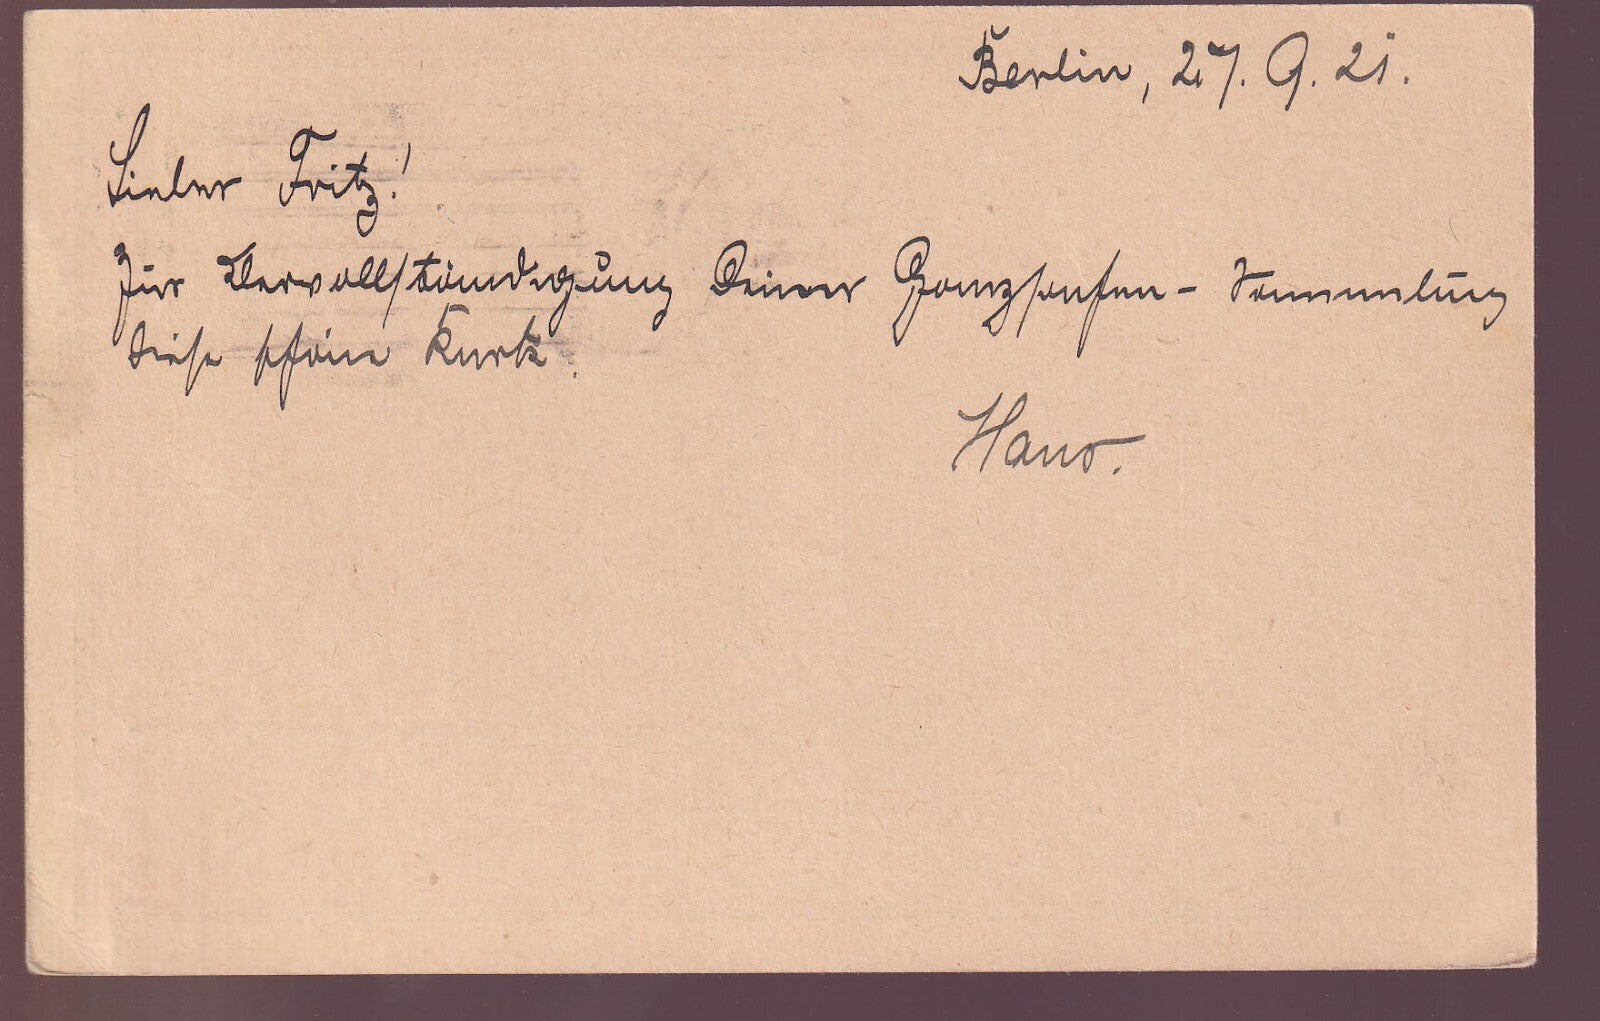 Berlin, 27. 9. 21.
Lieber Fritz!
Zur Vervollständigung Deiner Ganzsachen - Sammlung
diese schöne Karte.
Hans.